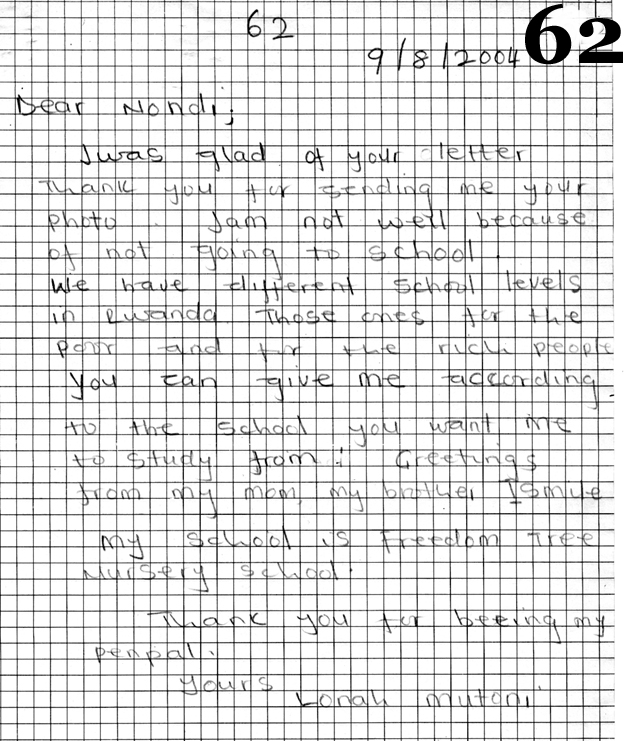 62
62
9/8/2004
Dear Nondi;
Iwas glad of your letter
Thank you for sending me your
photo. Iam not well because
of not going to school.
We have different school levels
in Rwanda Those ones for the
poor and for the rich people
you can give me according
to the school you want me
to study from: Greetings
from my mom, my brother Ismile
My school is Freedom Tree
Nursery school.
Thank you for beeing my
penpal.
Yours
Lonah Mutoni